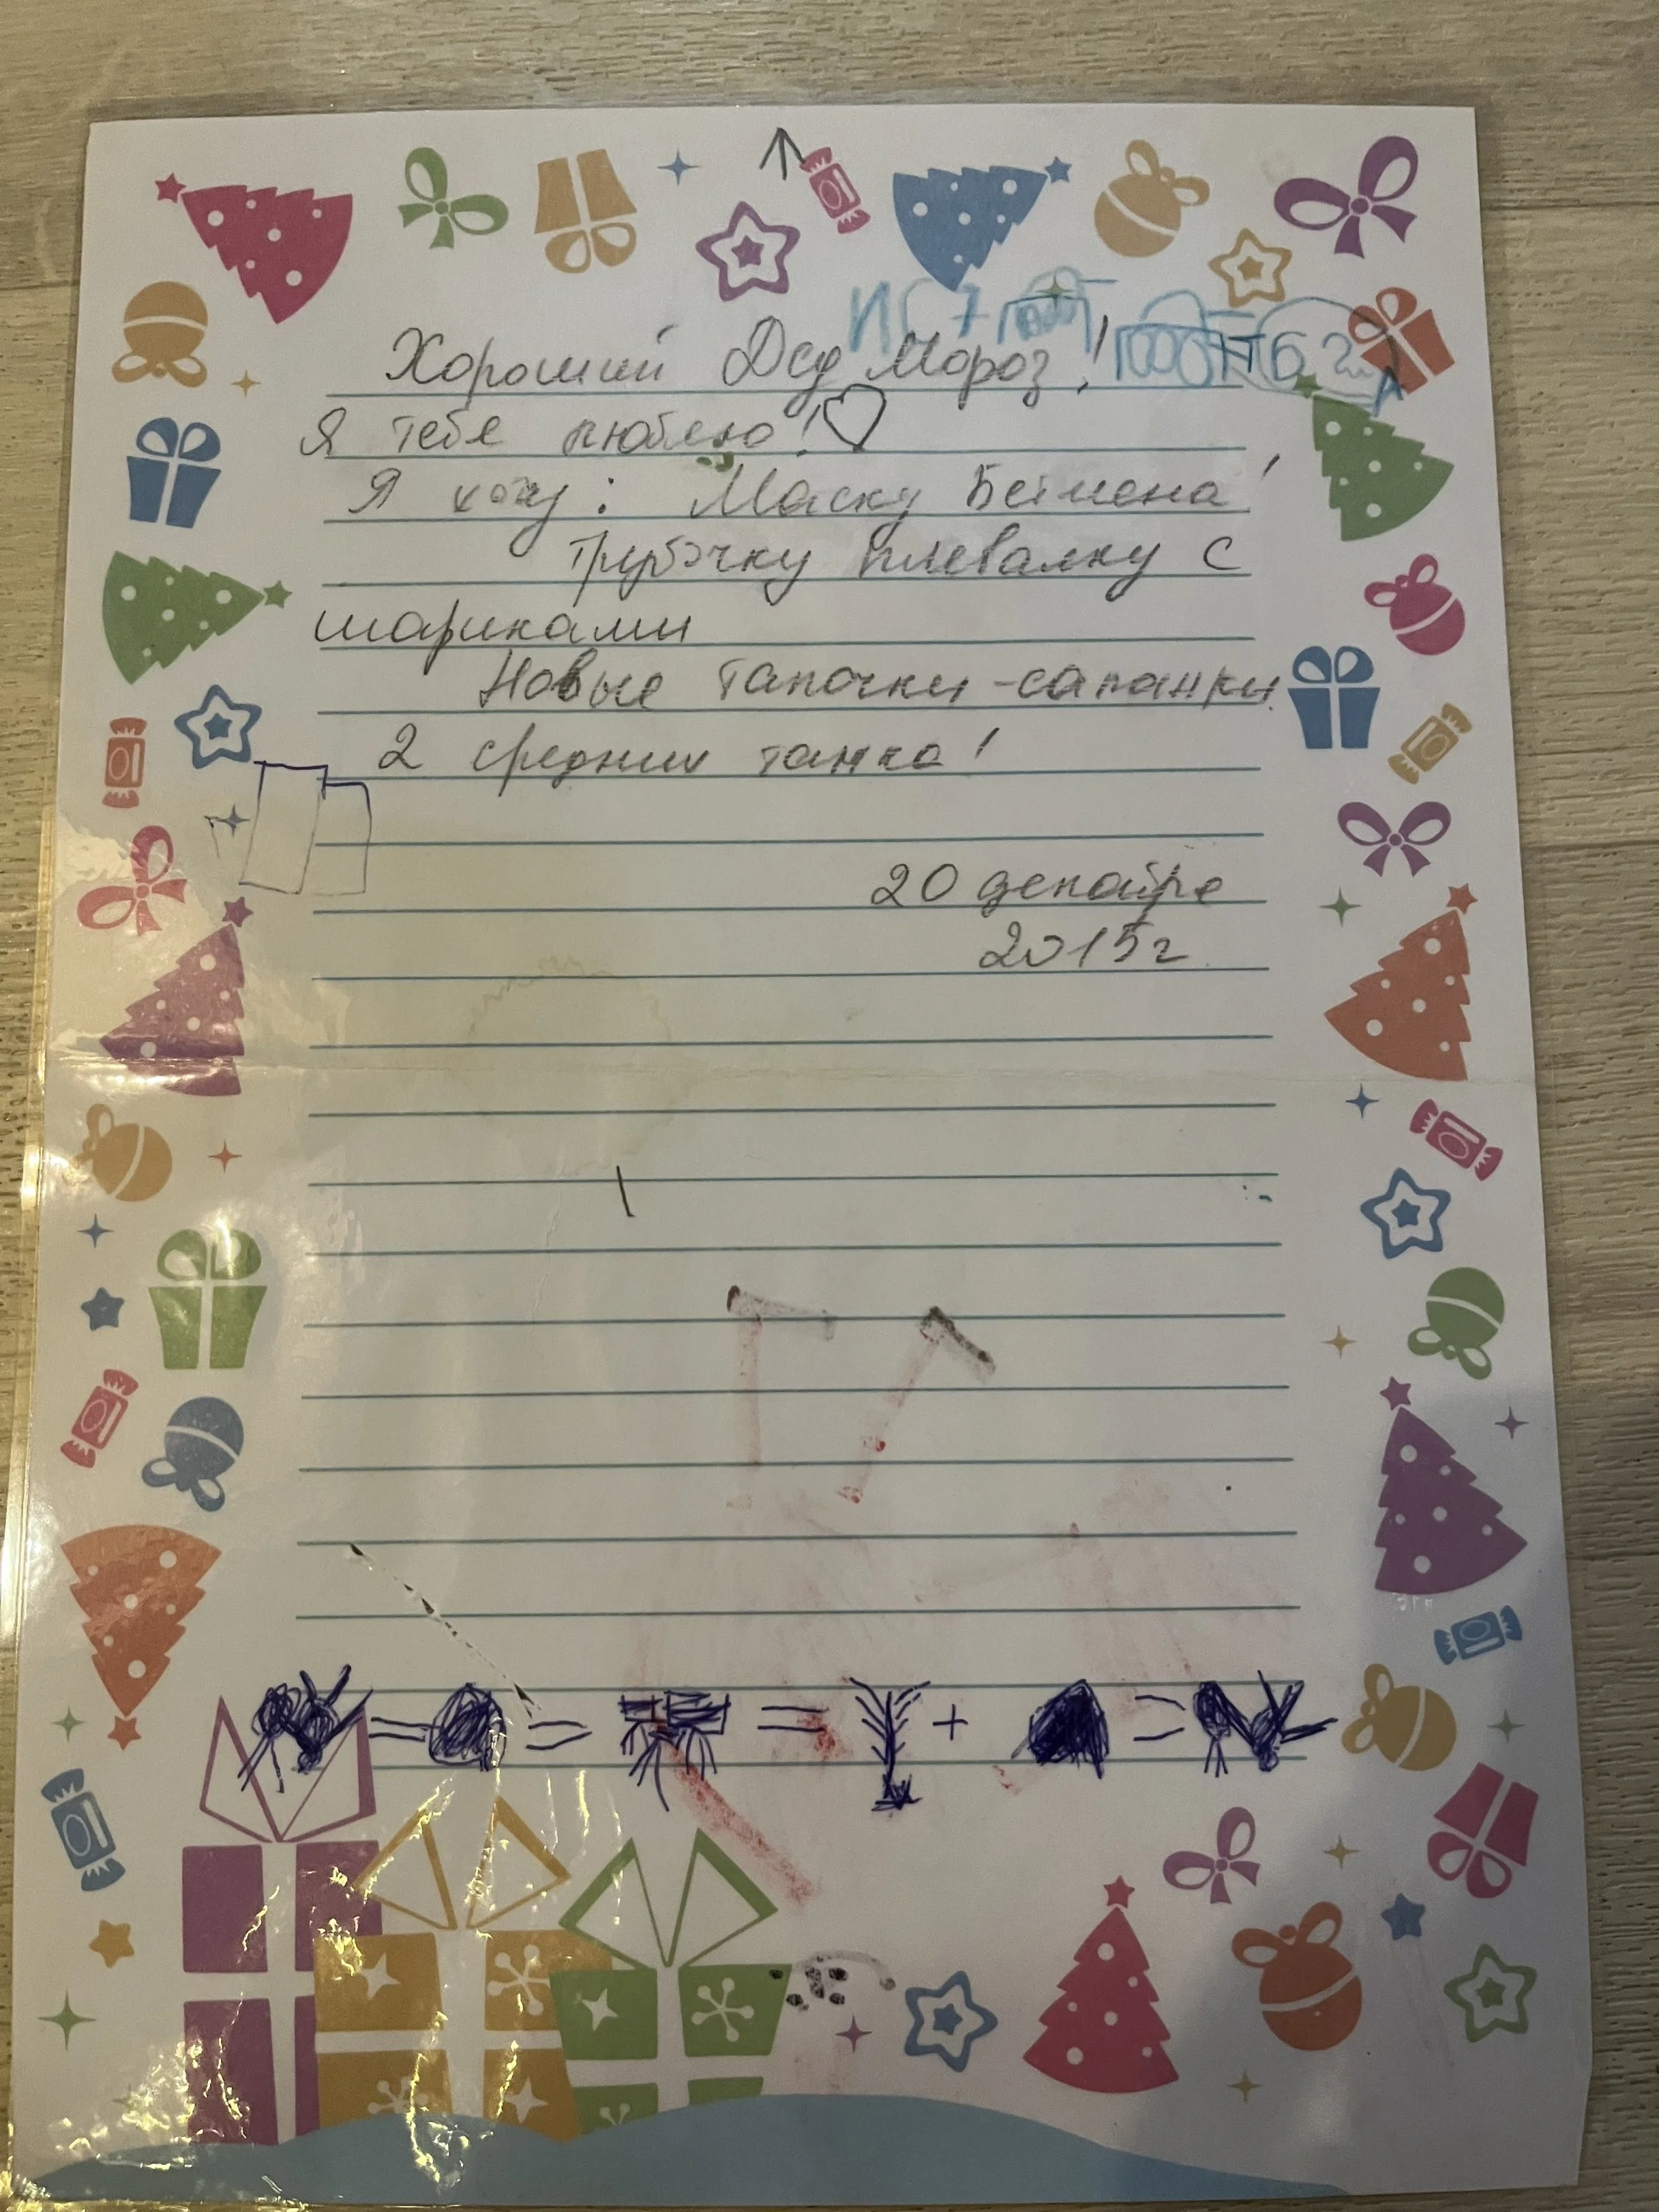 ИС 7
Хороший Дед Мороз!
Я тебя люблю!
Я хочу: Маску Бетмена!
Трубочку плевалку с
шариками
Новые тапочки-сапанки
2 средних танка!
20 декабря
2015г.